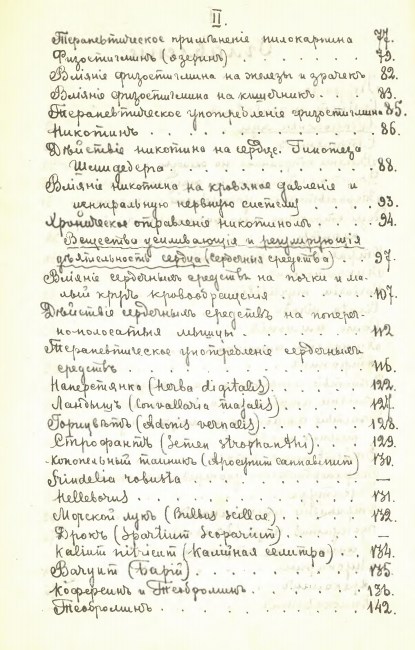 II.
Терапевтическое примѣненіе пилокарпина 77.
Физостигминъ (эзеринъ) . . . . . . . . 79.
Вліяніе физостигмина на железы и зрачекъ 82.
Вліяніе физостигмина на кишечникъ . . . 83.
Терапевтическое употребленіе физостигмина 85.
Никотинъ . . . . . . . . . . . . . 86.
Дѣйствіе никотина на сердце. Гипотеза
Шмидеберга . . . . . . . . . . . 88.
Вліяніе никотина на кровяное давленіе и
центральную нервную систему . . . . 93.
Хроническое отравленіе никотиномъ . . . 94.
Вещества усиливающія и регулирующія
дѣятельность сердца (сердечныя средства) . 97.
Вліяніе сердечныхъ средствъ на почки и ма-
лый кругъ кровообращенія . . . . . . 107.
Дѣйствіе сердечныхъ средствъ на попереч-
но-полосатыя мышцы . . . . . . . . 112
Терапевтическое употребленіе сердечныхъ
средствъ . . . . . . . . . . . . . 116.
Наперстянка (Herba digitalis) . . . . . 122.
Ландышъ (Convallaria majalis) . . . . . 127.
Горицвѣтъ (Adonis vernalis) . . . . . . 128.
Строфантъ (Semen strophanthi) . . . . . 129.
Конопельный (Apocynum cannabinum) 130.
Grindelia robusta . . . . . . . . . . —
Helleborus . . . . . . . . . . . . 131.
Морской лукъ (Bulbus Scillae) . . . . . 132.
Дрокъ (Spartium Scoparium) . . . . . . —
Kalium nitricum (Калійная селитра) . . . 134.
Барій) . . . . . . . . . . . 135.
Кофеинъ и Теоброминъ . . . . . . . . 136.
Теоброминъ . . . . . . . . . . . . 142.